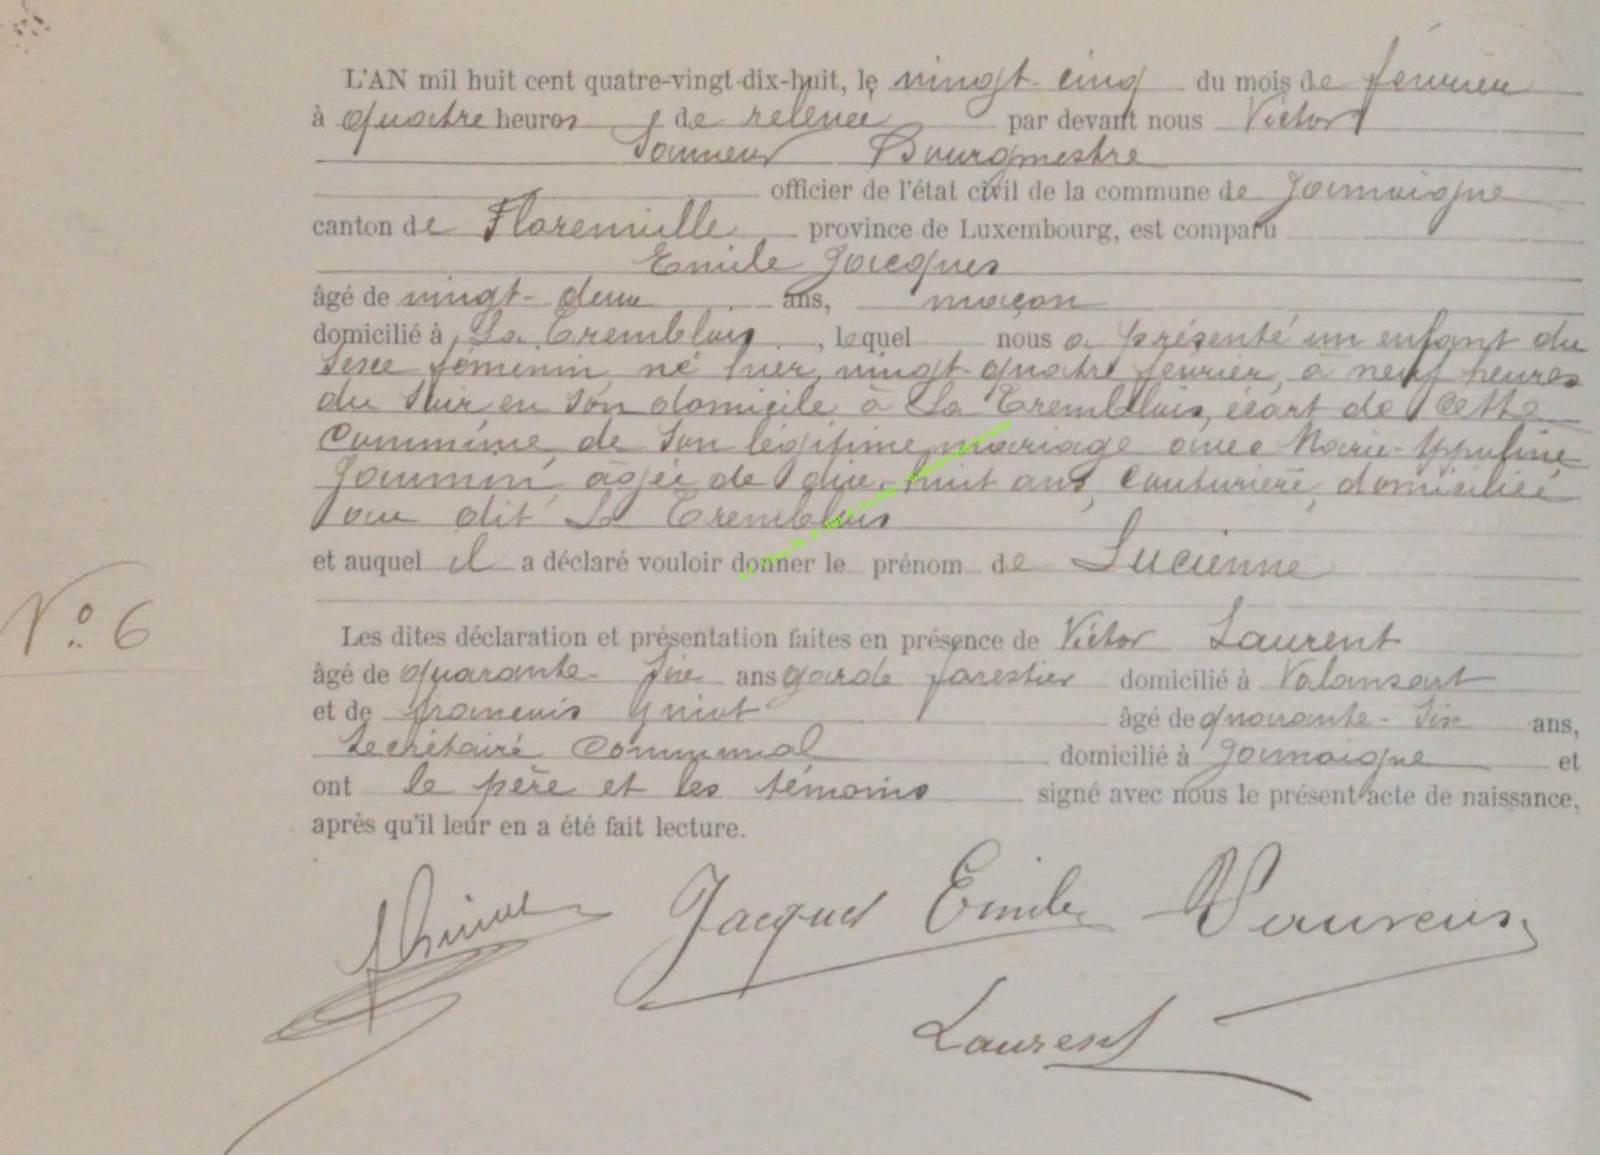 L'AN mil huit cent quatre-vingt-dix-huit, le vingt-cinq du mois de février
à quatre heures de relevée par devant nous Victor
Bourgmestre
officier de l'état civil de la commune de Jamoigne
canton de Florenville province de Luxembourg, est comparu
Emile Jacques
âgé de vingt-deux ans, maçon
domicilié à La Tremblois, lequel nous a présenté un enfant du
sexe féminin, né hier, vingt-quatre février, à neuf heures
du soir en son domicile à La Tremblois, écart de cette
commune, de son légitime mariage avec Marie-
âgée de dix-huit ans, couturière, domiciliée
au dit La Tremblois
et auquel il a déclaré vouloir donner le prénom de Lucienne
N° 6
Les dites déclaration et présentation faites en présence de Victor Laurent
âgé de quarante-six ans garde forestier domicilié à Valansart
et de françois âgé de quarante-six ans,
secrétaire communal domicilié à Jamoigne et
ont le père et les témoins signé avec nous le présent acte de naissance,
après qu'il leur en a été fait lecture.
Jacques Emile
Laurent